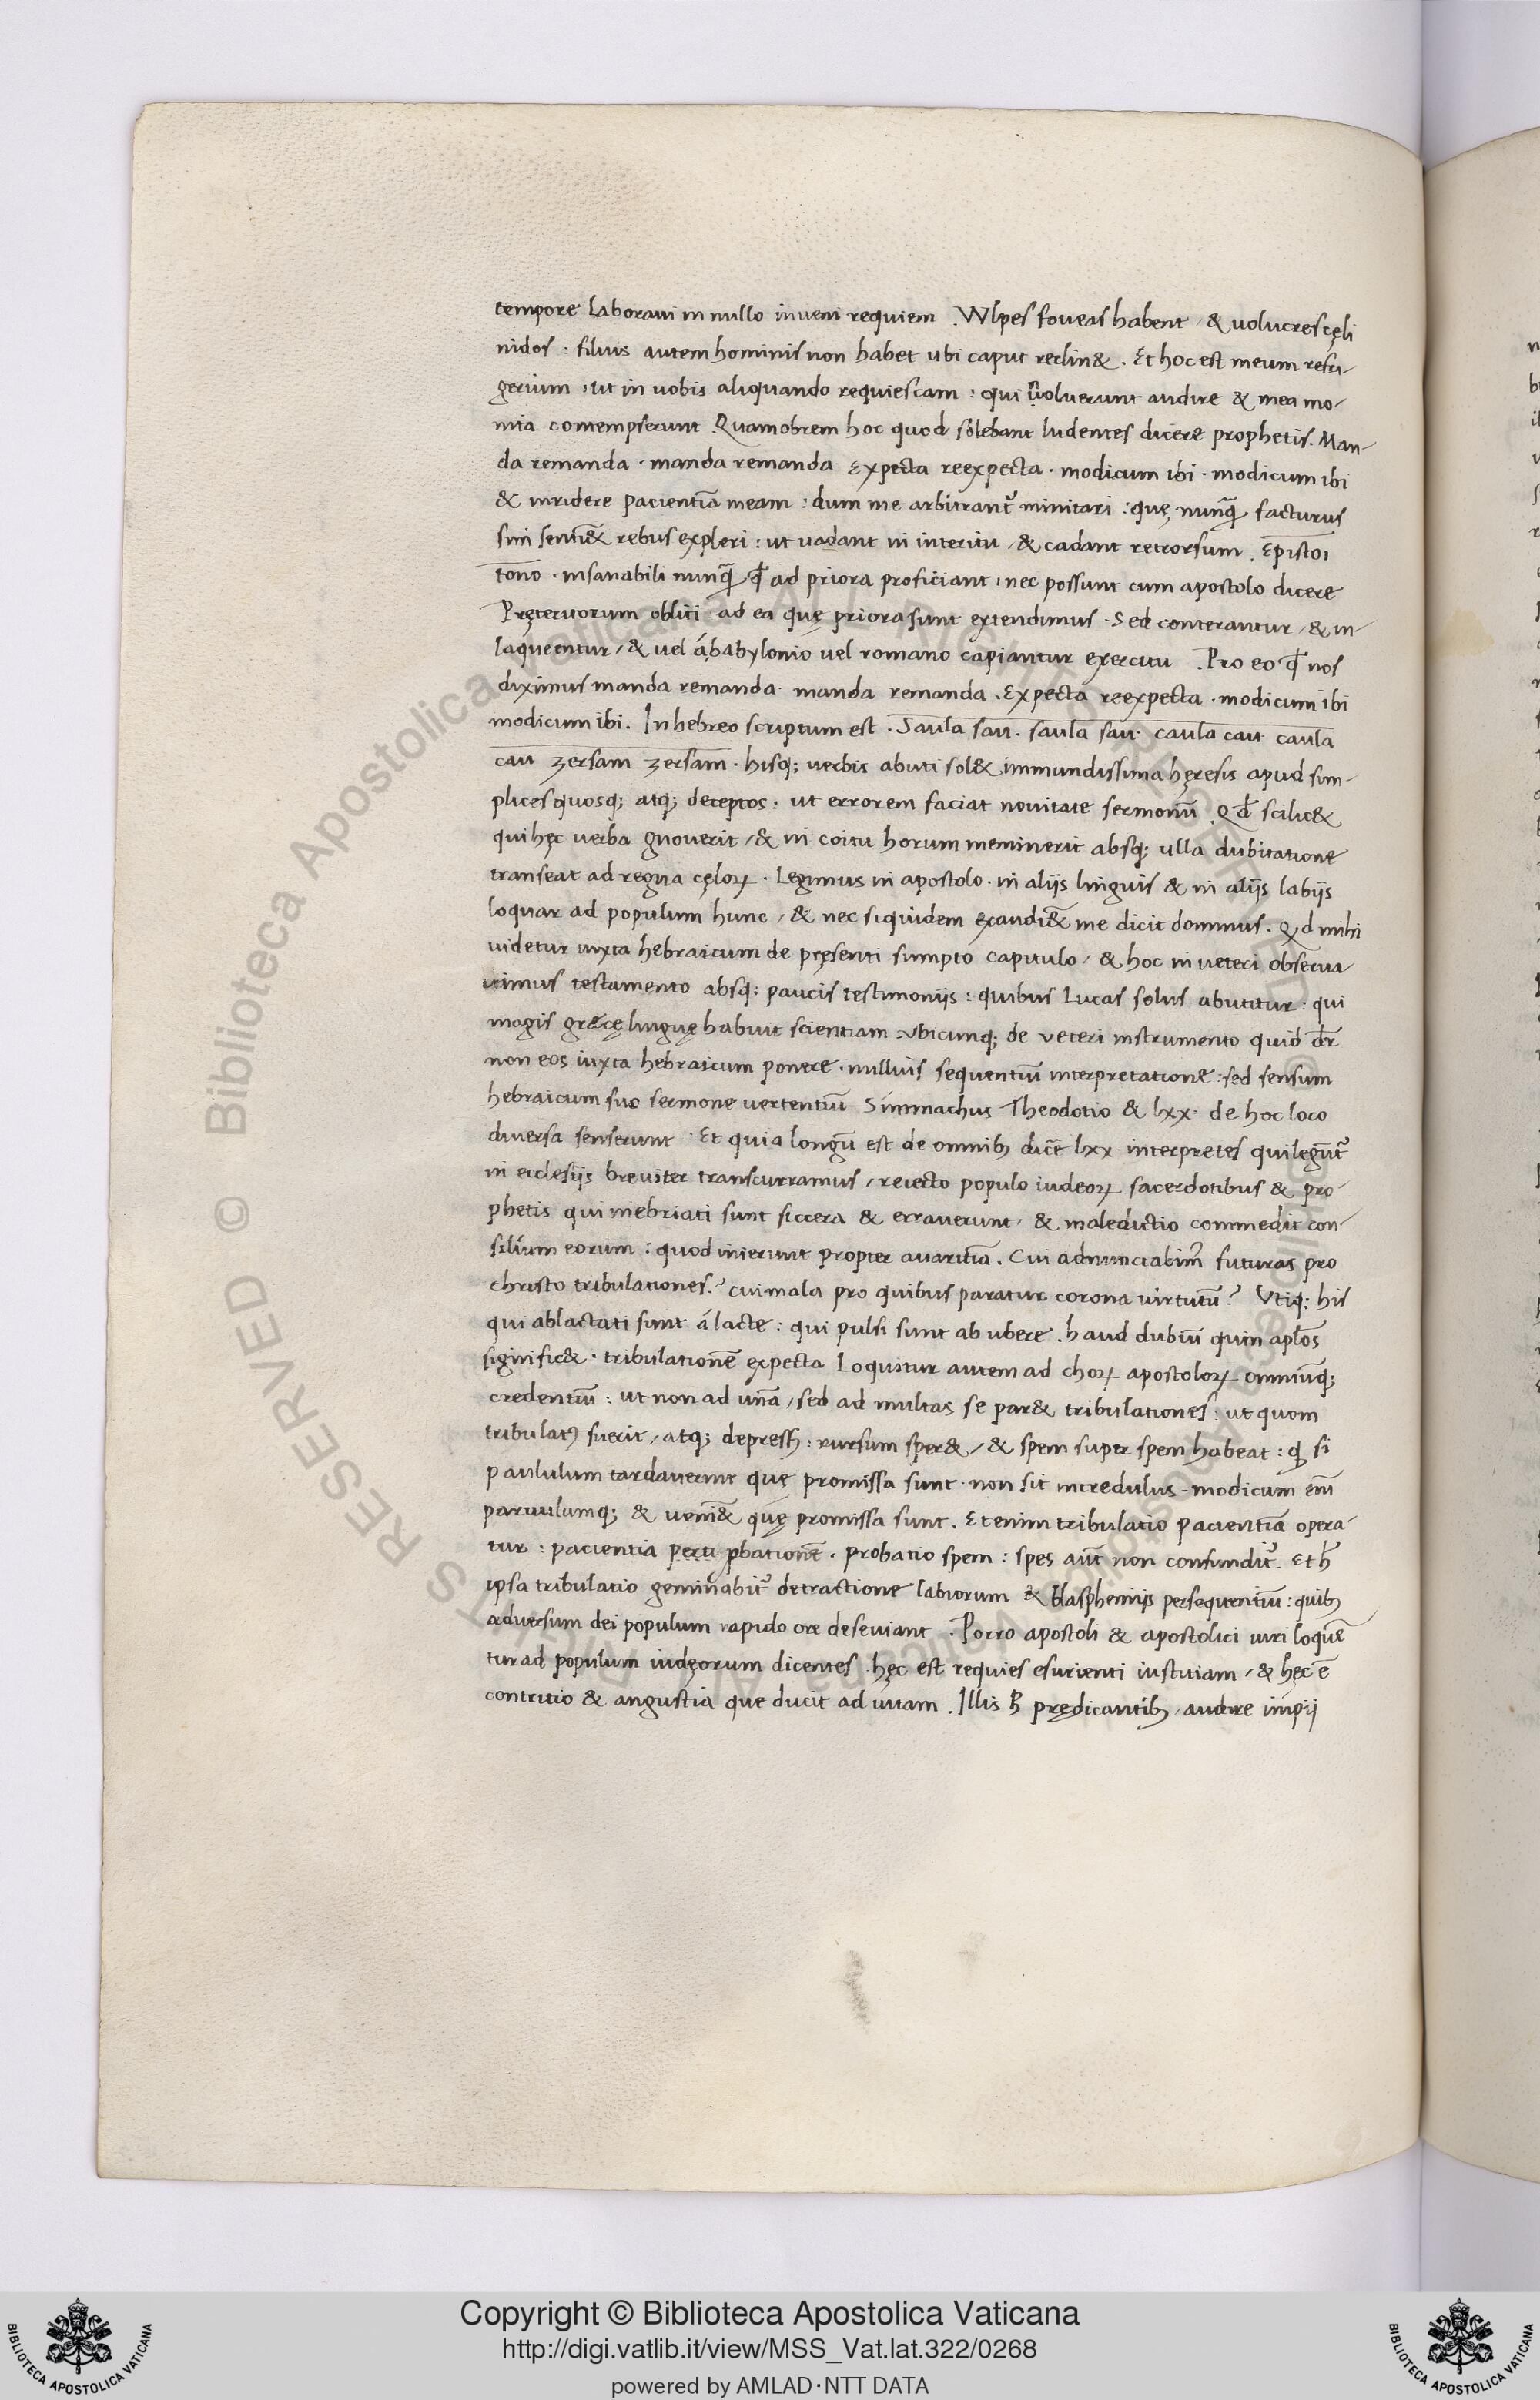 tempore laboraui in nullo inueni requiem . Wlpes foueas habent / & uolucres cęli
nidos : filius autem hominis non habet ubi caput reclin& . Et hoc est meum refri-
gerium : ut in uobis aliquando requiescam : qui noluerunt audire & mea mo-
nita contempserunt . Quamobrem hoc quod solebant ludentes dicere prophetis . Man-
da remanda . manda remanda . Expecta reexpecta . modicum ibi . modicum ibi
& inridere pacientiā meam : dum me arbitrant᷑ minitari : quę nunq̄ facturus
sim senti& rebus expleri : ut uadant in interitu / & cadant retrorsum .
insanabili nunq̄ qđ ad priora proficiant , nec possunt cum apostolo dicere
Pręteritorum obliti ad ea quę priora sunt extendimus . Sed conterantur / & in-
laqueentur / & uel á babylonio uel romano capiantur exercitu . Pro eo qđ nos
diximus manda remanda . manda remanda . Expecta reexpecta . modicum ibi
modicum ibi . In hebreo scriptum est . Saula sau . saula sau . caula cau . caula
cau zersam zersam . hisq; uerbis abuti sol& immundissima hęresis apud sim-
plices quosq; atq; deceptos : ut errorem faciat nouitate sermonū . Qđ scilic&
qui hęc uerba gnouerit / & in coitu horum meminerit absq; ulla dubitatione
transeat ad regna cęloꝝ . Legimus in apostolo . in alijs linguis & in alijs labijs
loquar ad populum hunc / & nec siquidem exaudi& me dicit dominus . Qd mihi
uidetur iuxta hebraicum de pręsenti sumpto capitulo / & hoc in ueteri obserua
uimus testamento absq; paucis testimonijs : quibus Lucas solus abutitur : qui
magis gręcę linguę habuit scientiam . ubicunq; de veteri instrumento quid dr̄
non eos iuxta hebraicum ponere . nullius sequentiū interpretatione : sed sensum
hebraicum suo sermone uertentiū Simmachus Theodotio & lxx . de hoc loco
diuersa senserunt . Et quia longū est de omnibȝ dicē lxx . interpretes qui legūt᷑
in ecclesijs breuiter transcurramus / reiecto populo iudeoꝝ sacerdotibus & pro-
phetis qui inebriati sunt siccera & errauerunt , & maledictio commedit con-
silium eorum : quod inierunt propter auaritiā . Cui adnunciabim᷑ futuras pro
christo tribulationes ? cui mala pro quibus paratur corona uirtutū ? Vtiq; his
qui ablactati sunt á lacte : qui pulsi sunt ab ubere . haud dubiū quin apłos
signific& . tribulationē expecta Loquitur autem ad choꝝ apostoloꝝ omniūq;
credentiū : ut non ad unā / sed ad multas se par& tribulationes : ut quom
tribulatꝰ fuerit / atq; depressꝰ : rursum sper& / & spem super spem habeat : qđ si
paululum tardauerint quę promissa sunt . non sit incredulus . modicum em̄
paruulumq; & ueni& quę promissa sunt . Etenim tribulatio pacientiā opera-
tur : pacientia ꝓbationē . probatio spem : spes aut̄ non confundit᷑ . Et h̄
ipsa tribulatio geminabit᷑ detractione labiorum & blasphemijs persequentiū : quibȝ
aduersum dei populum rapido ore deseuiant . Porro apostoli & apostolici uiri loquē
tur ad populum iudęorum dicentes . hęc est requies esurienti iustitiam / & hęc ē
contritio & angustia que ducit ad uitam . Illis h̄ prędicantibȝ / audire impij

Copyright © Biblioteca Apostolica Vaticana
http://digi.vatlib.it/view/MSS_Vat.lat.322/0268
powered by AMLAD·NTT DATA
BIBLIOTECA APOSTOLICA VATICANA
BIBLIOTECA APOSTOLICA VATICANA